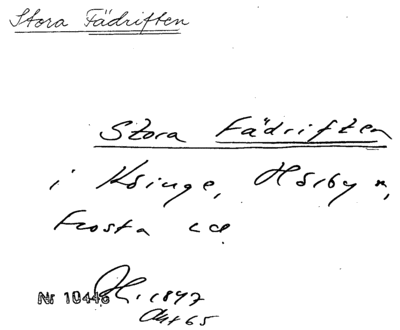 Stora Fädriften
Stora Fädriften
i Köinge, Hörby sn,
Frosta hd
Nr 10446 1847
Akt 65